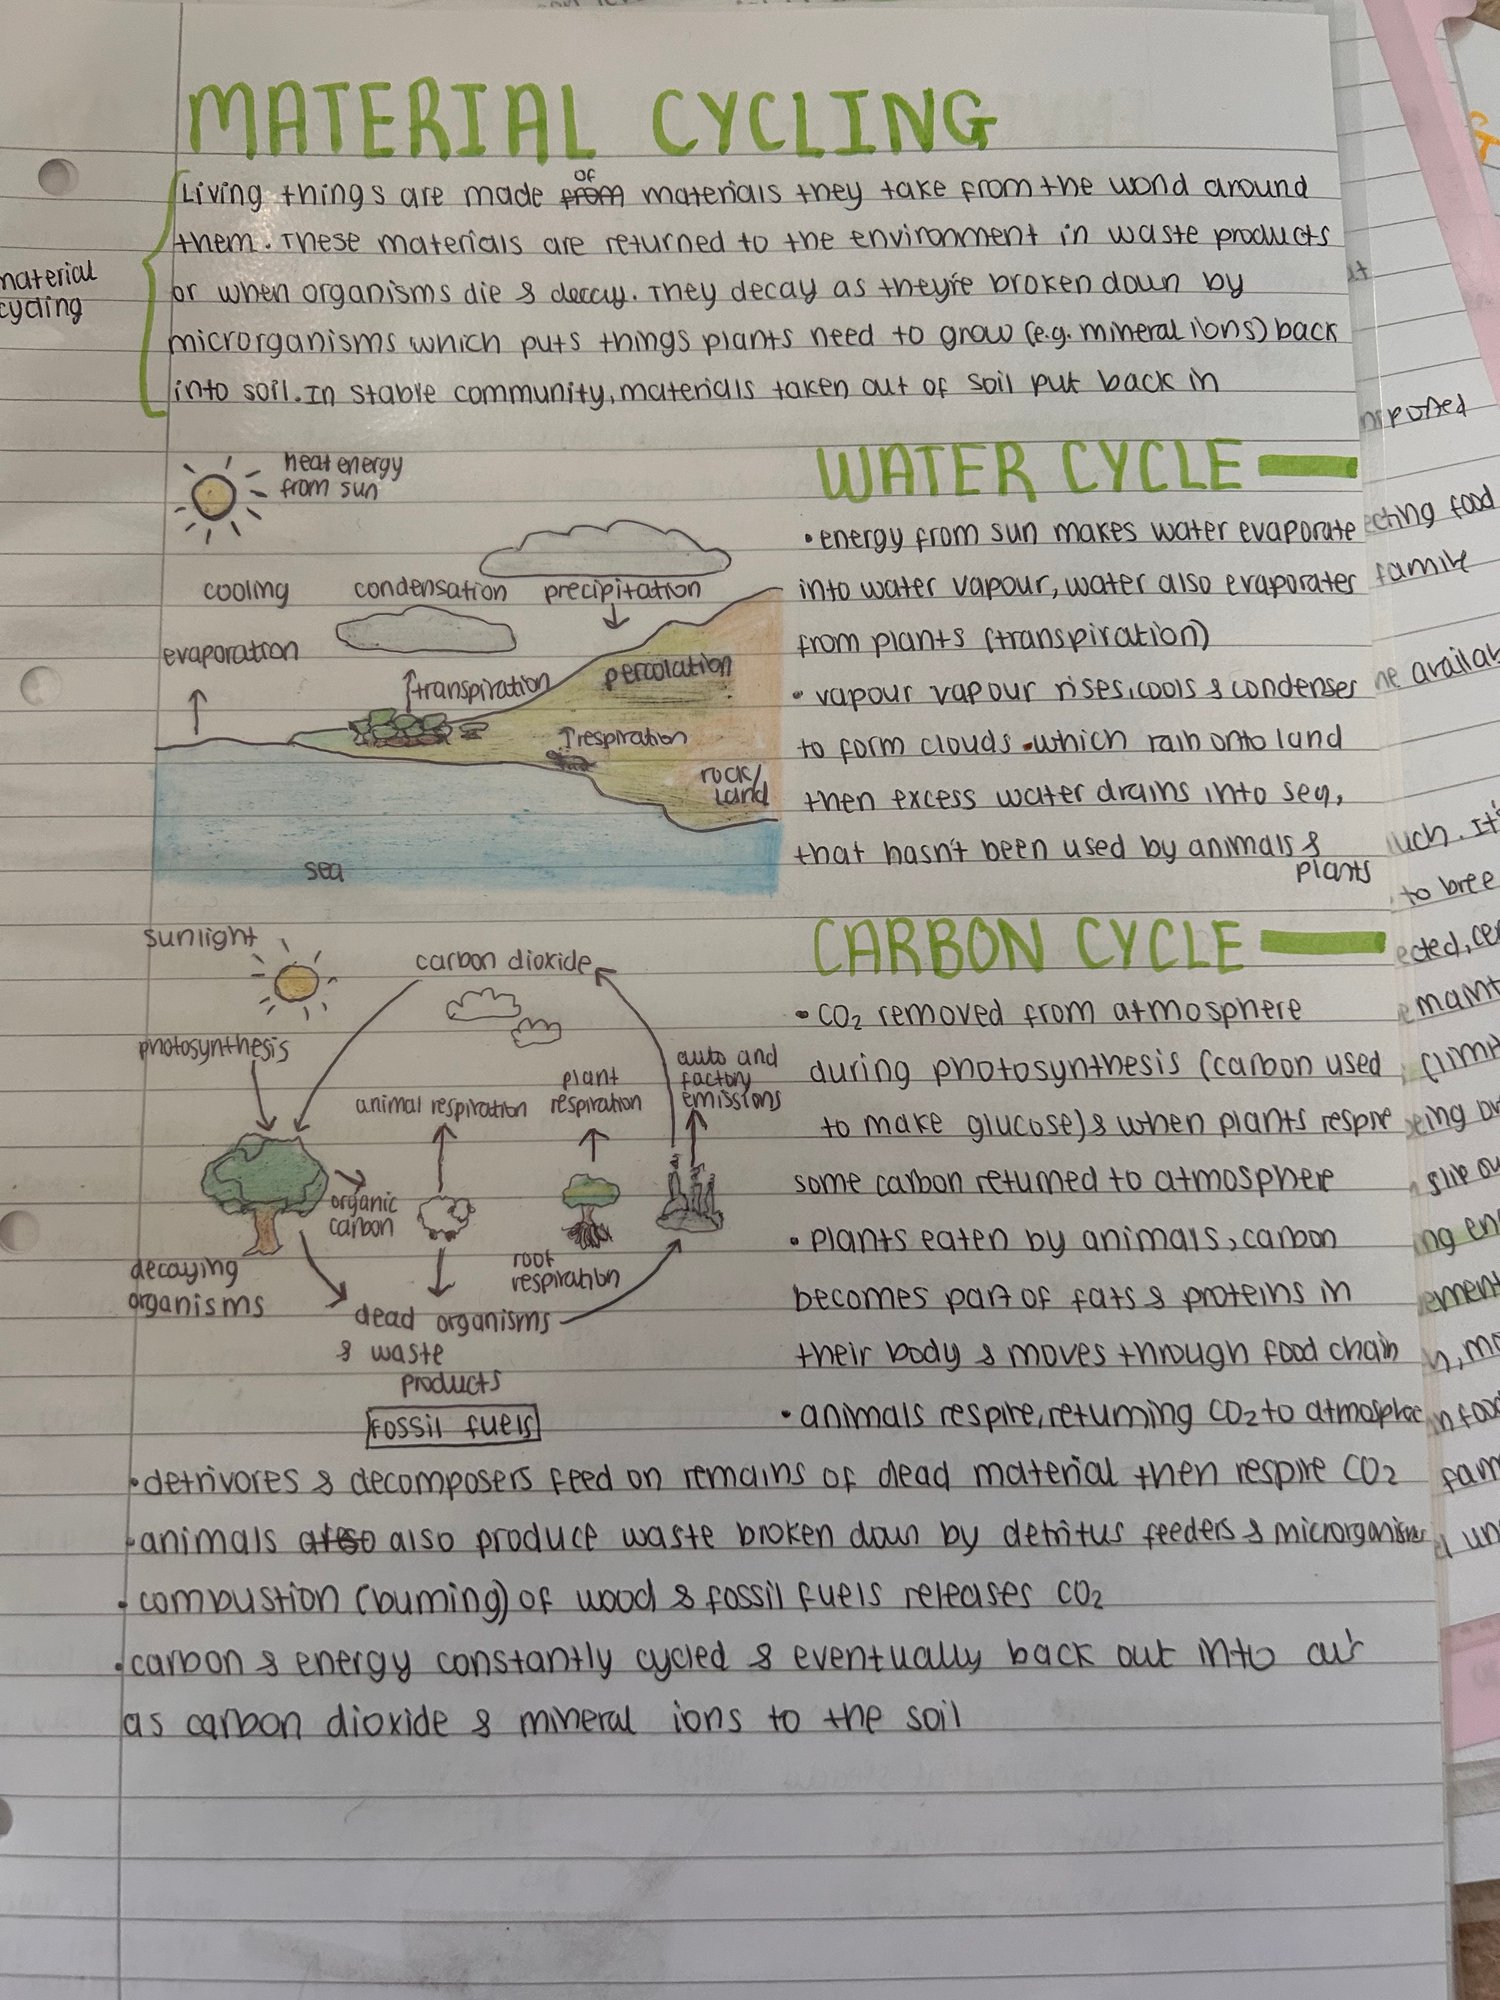 MATERIAL CYCLING
Living things are made from of materials they take from the world around
them. These materials are returned to the environment in waste products
or when organisms die & decay. They decay as they're broken down by
microrganisms which puts things plants need to grow (e.g. mineral ions) back
into soil. In stable community, materials taken out of soil put back in
material
cycling
heat energy
from sun
cooling
condensation
precipitation
evaporation
transpiration
percolation
respiration
rock/
land
sea
WATER CYCLE
• energy from sun makes water evaporate
into water vapour, water also evaporates
from plants (transpiration)
• vapour vapour rises, cools & condenses
to form clouds which rain onto land
then excess water drains into sea,
that hasn't been used by animals &
plants
sunlight
carbon dioxide
photosynthesis
animal respiration
plant
respiration
auto and
factory
emissions
organic
carbon
root
respiration
decaying
organisms
dead organisms
& waste
products
fossil fuels
CARBON CYCLE
• CO₂ removed from atmosphere
during photosynthesis (carbon used
to make glucose) & when plants respire
some carbon returned to atmosphere
• plants eaten by animals, carbon
becomes part of fats & proteins in
their body & moves through food chain
• animals respire, returning CO₂ to atmosphere
• detrivores & decomposers feed on remains of dead material then respire CO₂
• animals also also produce waste broken down by detritus feeders & microrganisms
• combustion (burning) of wood & fossil fuels releases CO₂
• carbon & energy constantly cycled & eventually back out into air
as carbon dioxide & mineral ions to the soil
food
famine
uch. It's
to bree